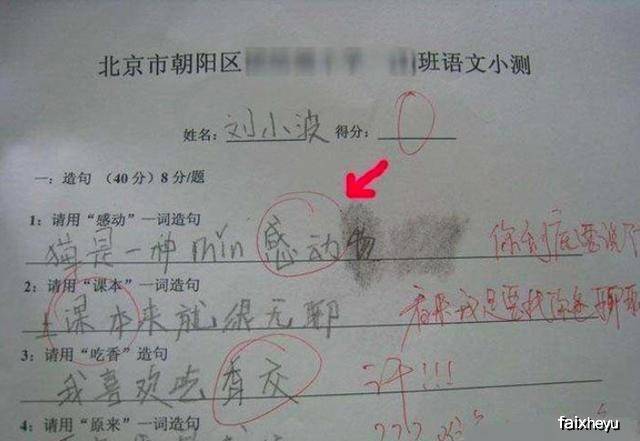 北京市朝阳区 班语文小测
姓名: 刘小波 得分: 0
一: 造句 (40分) 8分/题
1: 请用“感动”一词造句
猫是一种min感动物
你到底要说
2: 请用“课本”一词造句
上课本来就很无聊
看来我是要找你爸聊聊
3: 请用“吃香”造句
我喜欢吃香交
汗!!!
4: 请用“原来”一词造句
faixheyu